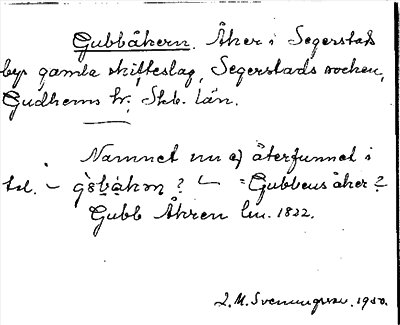 Gubbåkern. Åker i Segerstads
bys gamla skifteslag, Segerstads socken,
Gudhems hd. Skb. län.
Namnet nu ej återfunnet i
tal. – gòbåkən ? – = Gubbens åker ?
Gubb Åkren Lm. 1822.
L. M. Svenungsson. 1950.